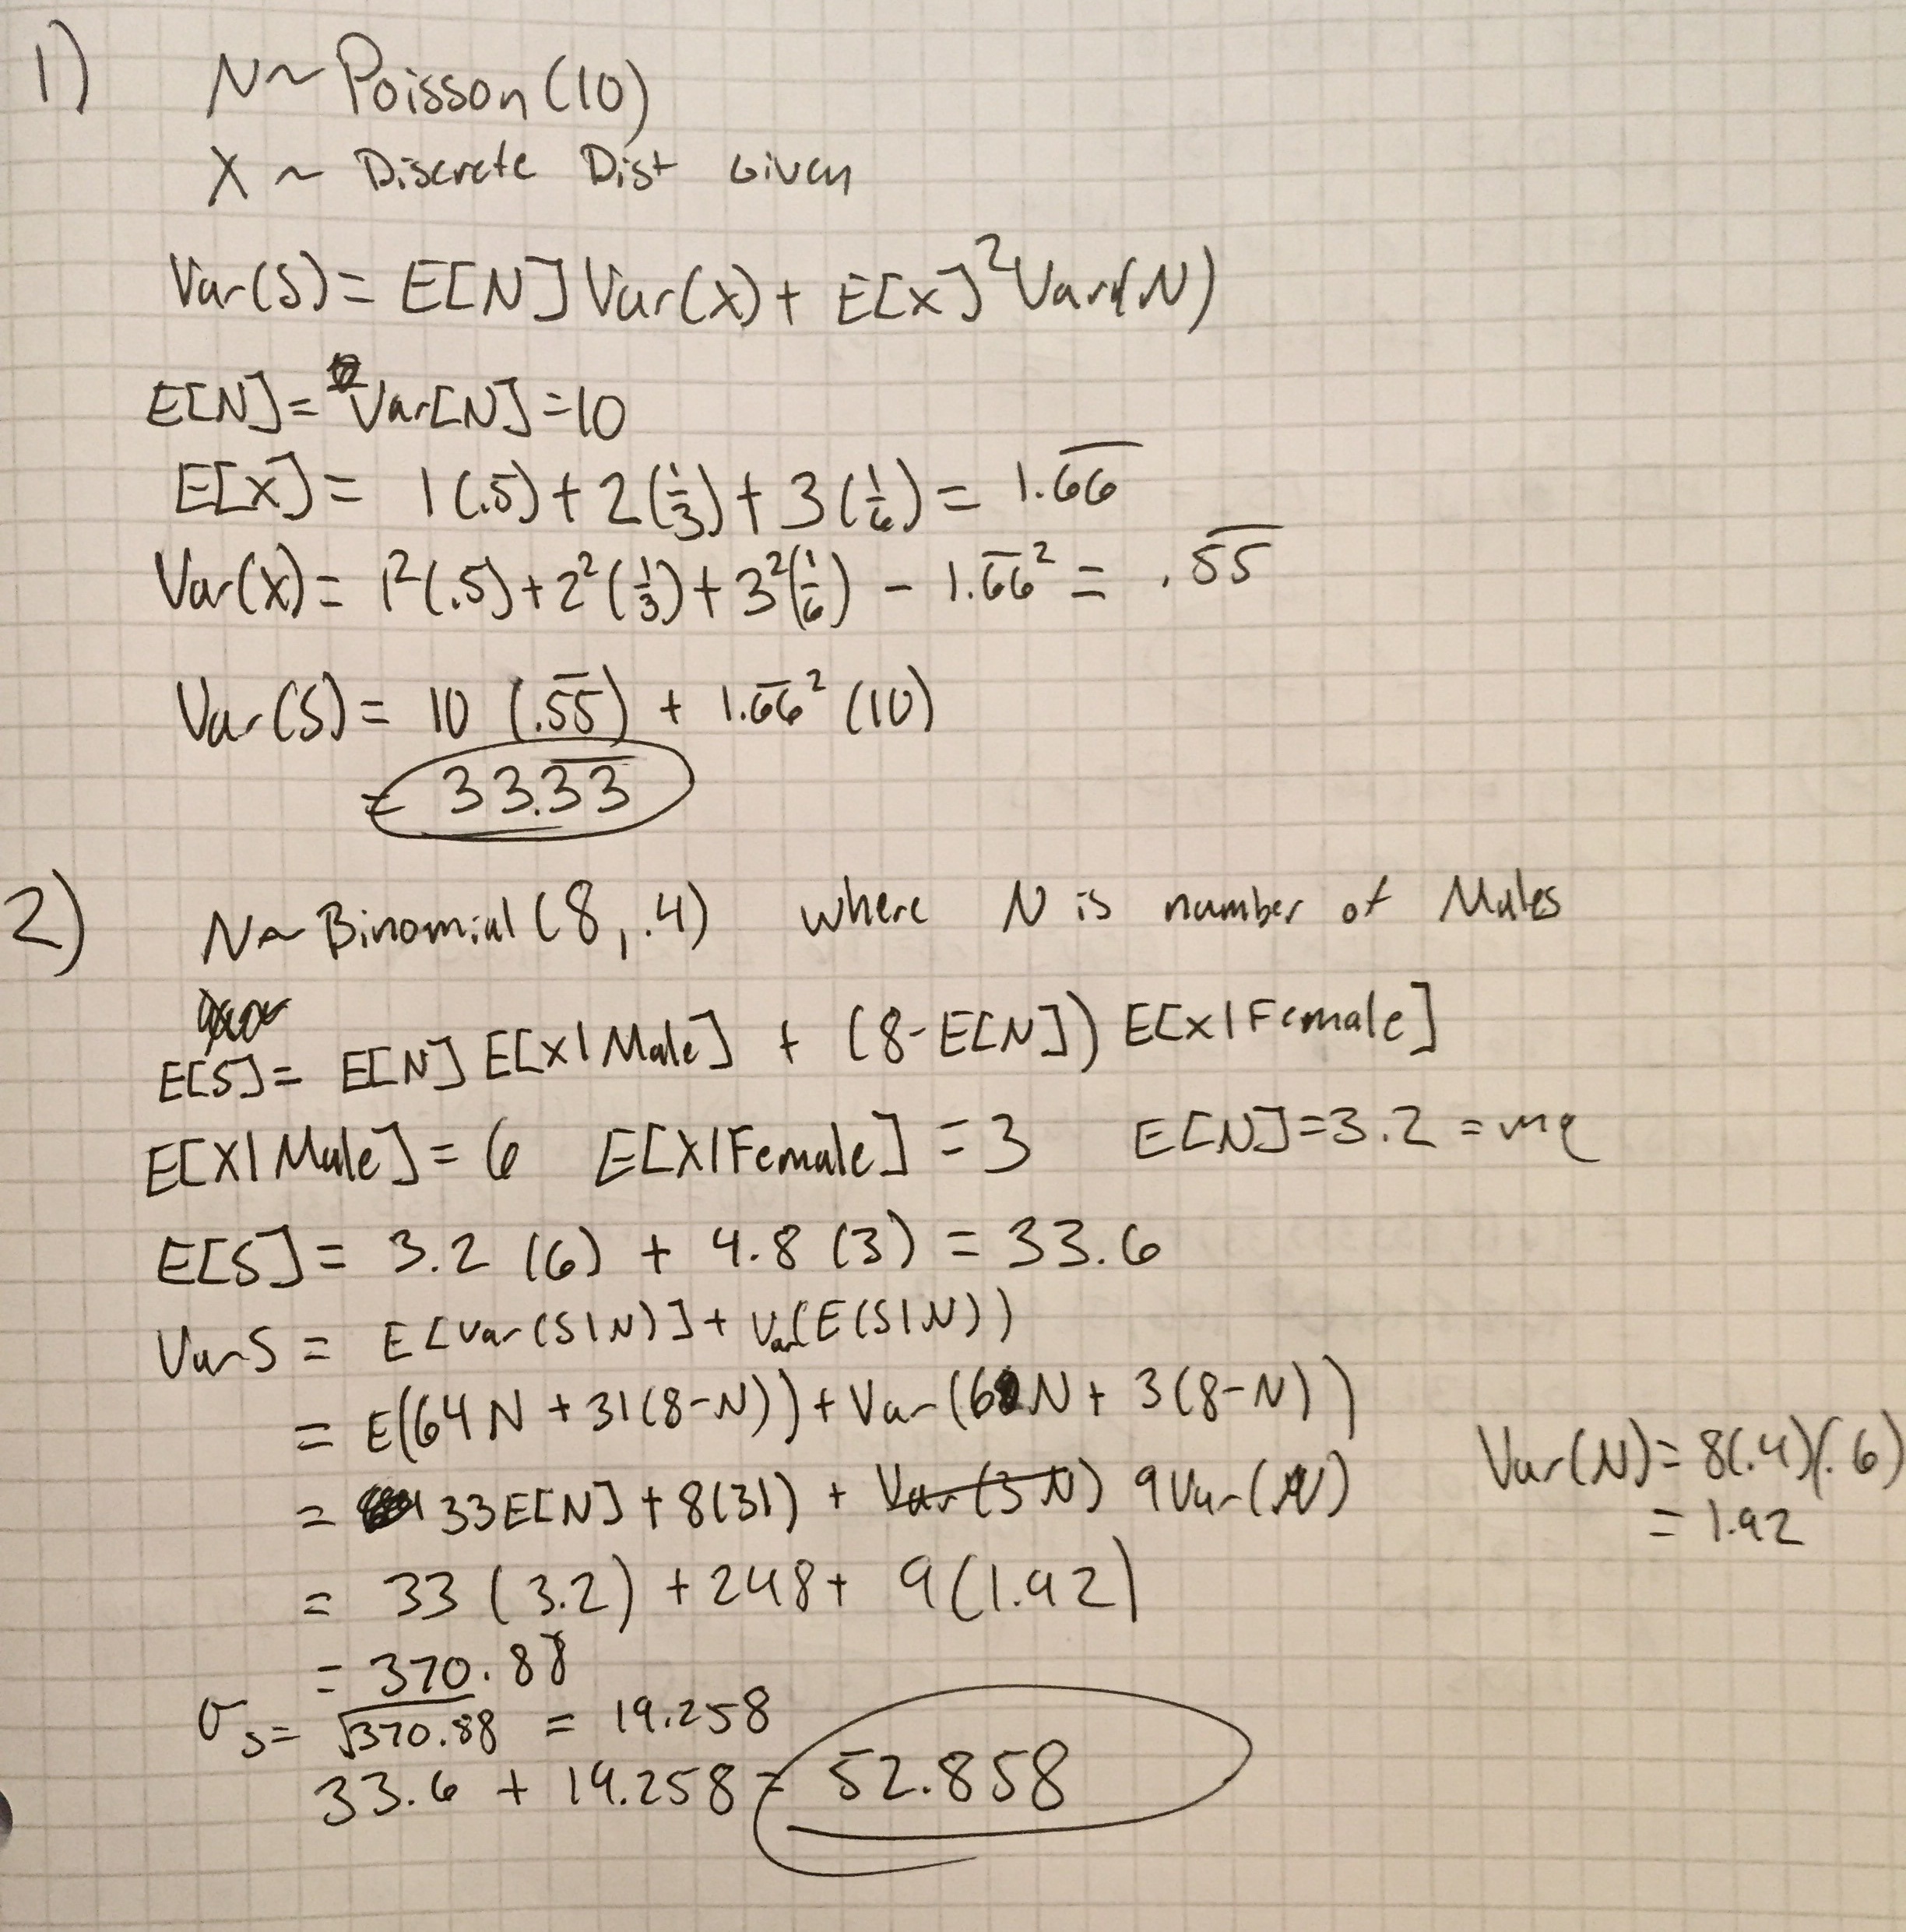 1) N ~ Poisson (10)
X ~ Discrete Dist Given
Var(S) = E[N] Var(X) + E[X]² Var(N)
E[N] = Var[N] = 10
E[X] = 1(.5) + 2(1/3) + 3(1/6) = 1.6̅6̅
Var(X) = 1²(.5) + 2²(1/3) + 3²(1/6) - 1.6̅6̅² = .5̅5̅
Var(S) = 10 (.5̅5̅) + 1.6̅6̅² (10)
= 33.3̅3̅
2) N ~ Binomial (8, .4) where N is number of Males
E[S] = E[N] E[X|Male] + (8-E[N]) E[X|Female]
E[X|Male] = 6 E[X|Female] = 3 E[N] = 3.2 = mq
E[S] = 3.2 (6) + 4.8 (3) = 33.6
Var S = E[Var(S|N)] + Var(E(S|N))
= E(64N + 31(8-N)) + Var(6N + 3(8-N))
= 33E[N] + 8(31) + Var(3N) 9Var(N)
Var(N) = 8(.4)(.6)
= 1.92
= 33 (3.2) + 248 + 9(1.92)
= 370.88
σs = √370.88 = 19.258
33.6 + 19.258 = 52.858